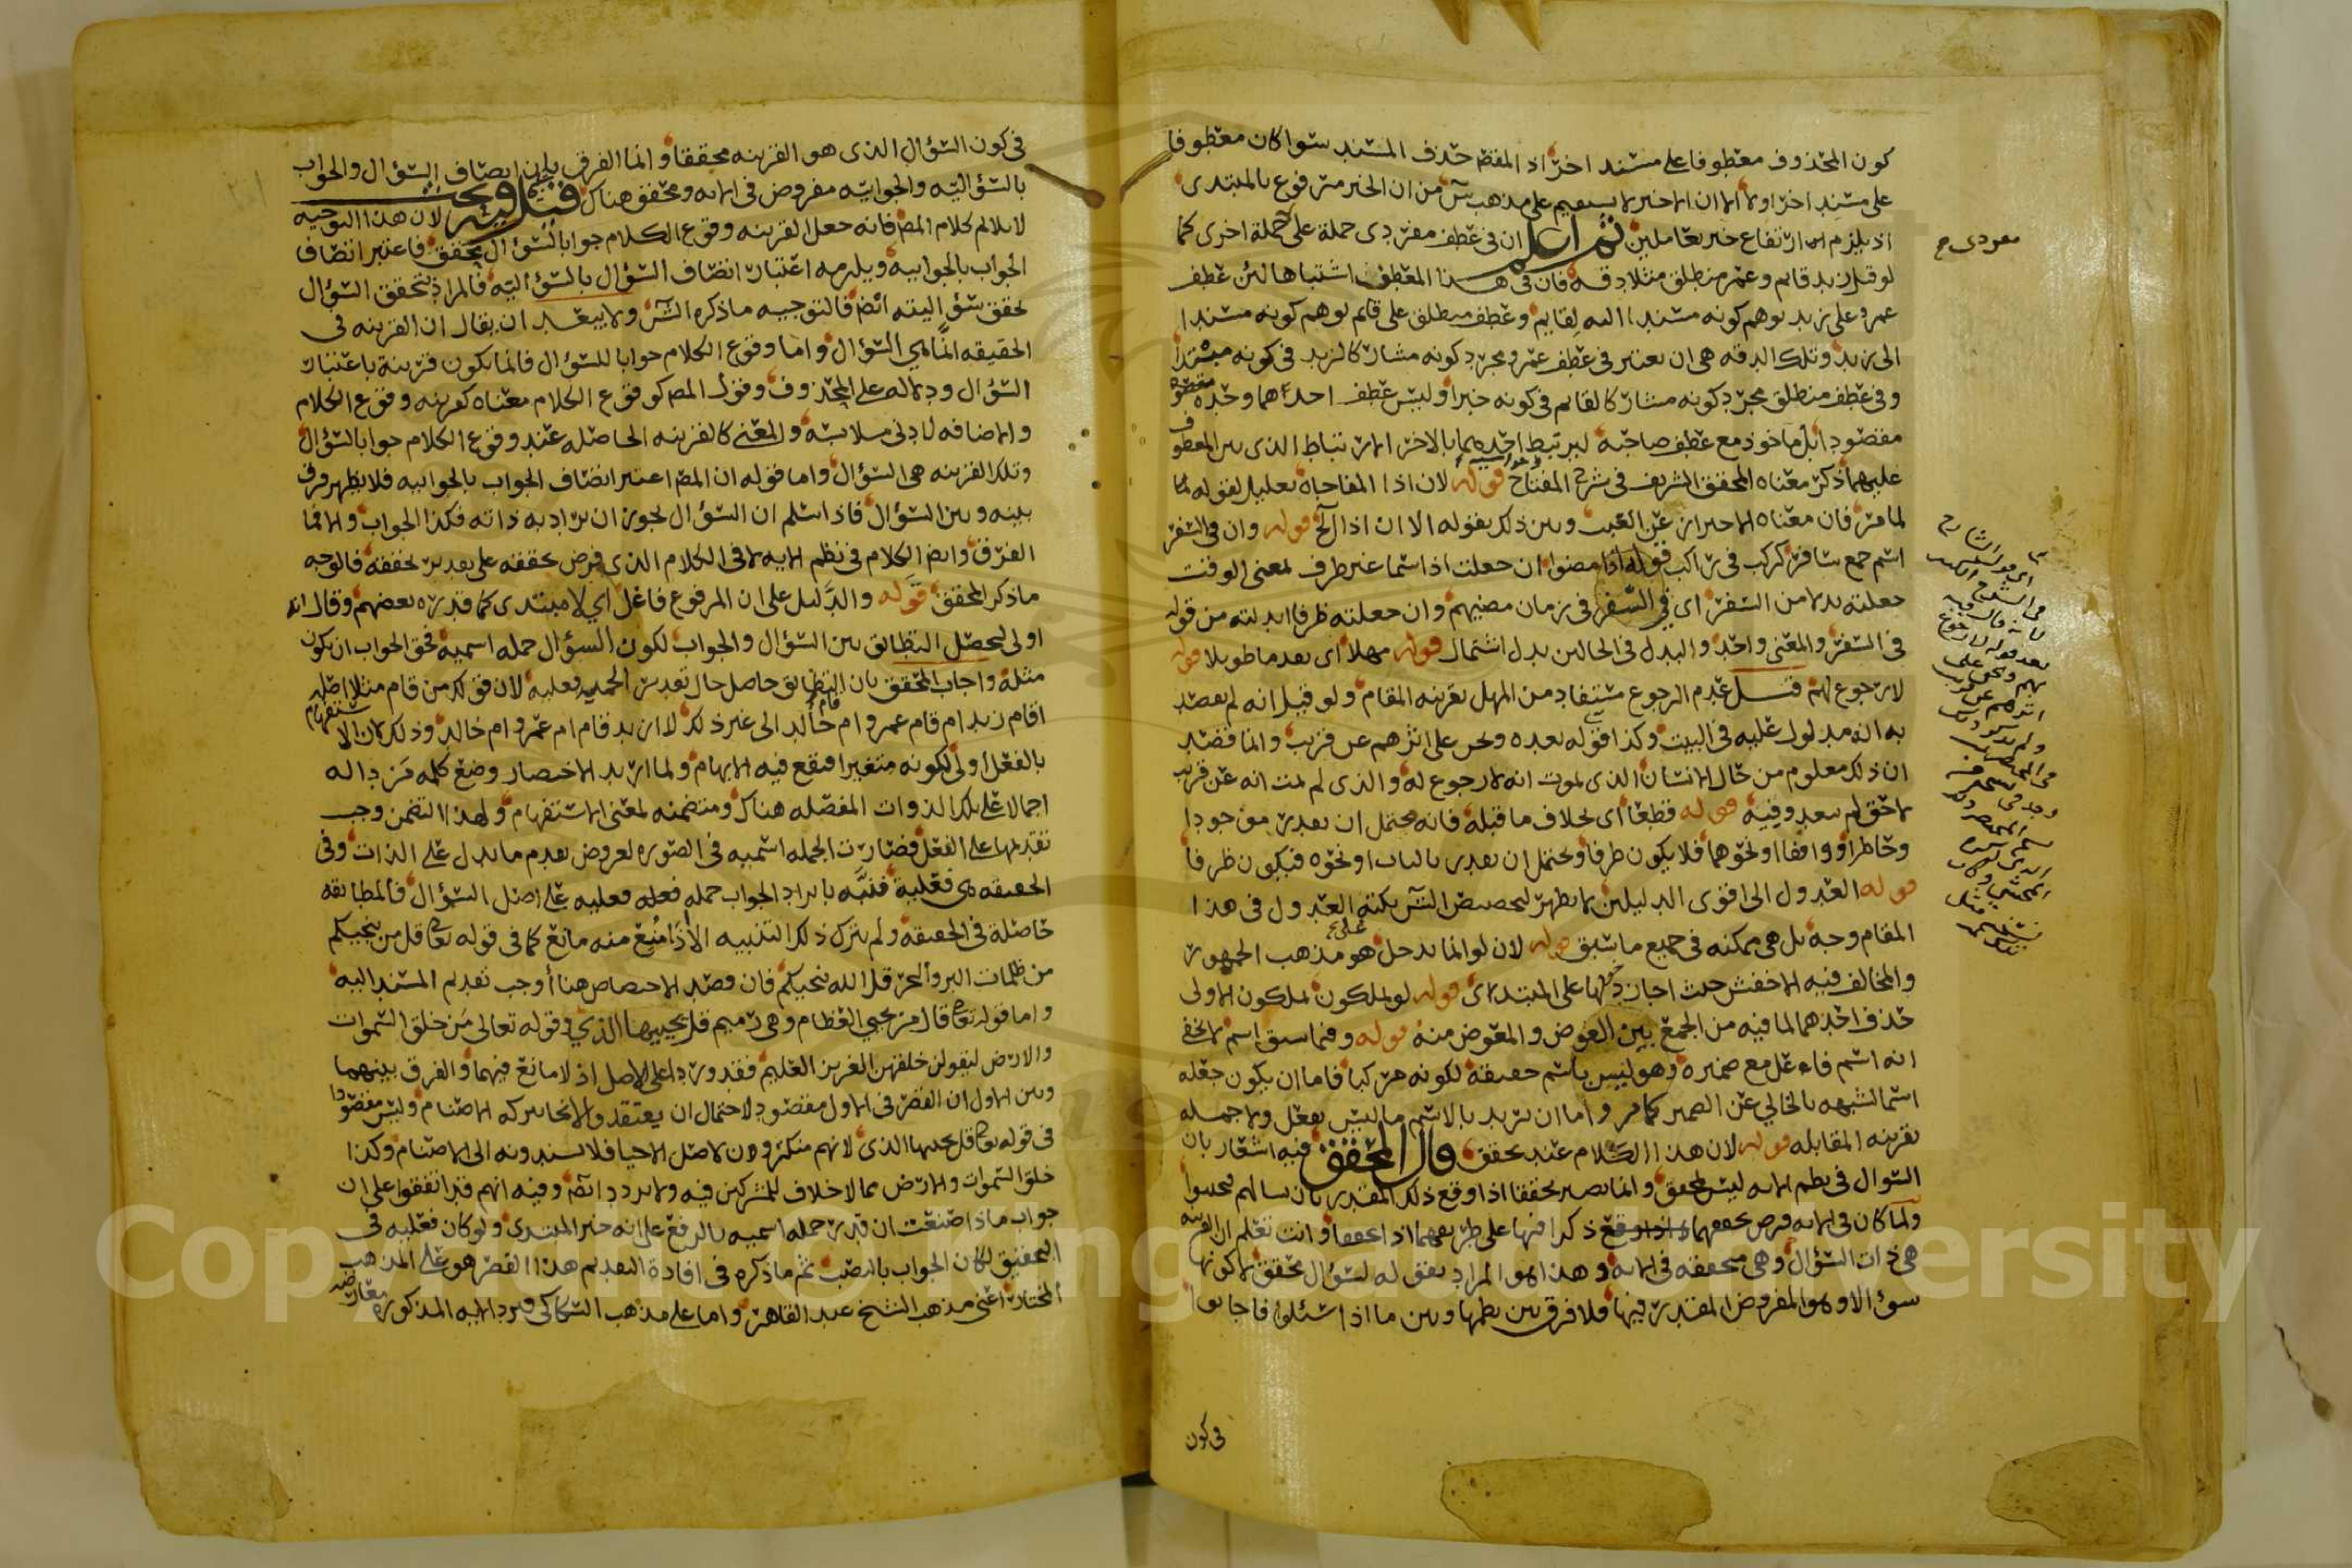 كون المحذوف معطوفا على مسند اخر اذ المقص حذف المسند سوا كان معطوفا
على مسند اخر اولا الا ان الاخير لا يستقيم على مذهب س من ان الخبر مرفوع بالمبتدى
اذ يلزم ارتفاع خبر بعاملين ثم اعلم ان فى عطف مفردى جملة على جملة اخرى كما
لو قيل زيد قايم وعمر منطلق مثلا دقه فان فى هذا العطف اشتباها لئن عطف
عمرو على زيد يوهم كونه مسندا اليه لقايم وعطف منطلق على قايم يوهم كونه مسندا
الى زيد وتلك الدقه هى ان يعتبر فى عطف عمرو مجرد كونه مشاركا لزيد فى كونه مبتدا
وفى عطف منطلق مجرد كونه مشاركا لقايم فى كونه خبرا وليس عطف احدهما وحده
مقصودا بل ماخوذ مع عطف صاحبه ليرتبط احدهما بالاخر الارتباط الذى بين المعطوف
عليهما ذكر معناه المحقق الشريف فى شرح المفتاح قوله لان اذا المفاجاة تعليل لقوله لما
لما مر فان معناه الاحتراز عن العبث وبين ذلك بقوله الا ان اذا الخ قوله وان فى السفر
اسم جمع سافر كركب فى راكب قوله اذا مضوا ان جعلت اذا اسما غير ظرف لمعنى الوقت
جعلته بدلا من السفر اى فى السفر فى زمان مضيهم وان جعلته ظرفا ابدلته من قوله
فى السفر والمعنى واحد والبدل فى الحالين بدل اشتمال قوله مهلا اى بعد ما طويلا قوله
لا رجوع لهم قيل عدم الرجوع مستفاد من المهل بقرينه المقام ولو قيل انه لم يقصد
به انه مدلول عليه فى البيت وكذا قوله بعده ونحن على اثرهم عن قريب وانما قصد
ان ذلك معلوم من حال الانسان الذى يموت انه لا رجوع له والذى لم يمت انه عن قريب
لاحق لم يبعد وفيه قوله قطعا اى بخلاف ما قبله فانه يحتمل ان يقدر موجودا
وحاظرا وواقفا او نحوهما فلا يكون ظرفا ويحتمل ان يقدر بالباب او نحوه فيكون ظرفا
قوله العدول الى اقوى الدليلين لا يظهر لتخصيص الش نكته العدول فى هذا
المقام وجه بل هى ممكنه فى جميع ما سبق قوله لان لو انما يدخل هو مذهب الجمهور
والمخالف فيه الاخفش حيث اجاز دخولها على المبتدا قوله لو تملكون تملكون الاولى
حذف احدهما لما فيه من الجمع بين العوض والمعوض منه قوله وفيما سبق اسم لا يخفى
انه اسم فاعل مع ضميره وهو ليس باسم حقيقة لكونه مركبا فاما ان يكون جعله
اسما لشبهه بالخالي عن الضمير كما مر واما ان يريد بالاسم ما ليس بفعل ولا جمله
بقرينه المقابله قوله لان هذا الكلام عند تحقق قال المحقق فيه اشعار بان
السوال فى نظم الايه ليس بمحقق وانما يصير محققا اذا وقع ذلك المقدر بان سالهم فيجيبوا
ولما كان فى الايه فرض تحققهما ذكرا فيها على طريقهما اذا تحققا وانت تعلم ان القرينه
هى ذات السؤال وهى متحققه فى الايه وهذا هو المراد بقوله لسؤال محقق لا كونها
سؤالا وهو المفروض المقدر فيها فلا فرق بين نظمها وبين ما اذا سئلوا فاجابوا
فى كون
فى كون السؤال الذى هو القرينه محققا وانما الفرق باعتبار اتصاف السؤال والجواب
بالسؤاليته والجوابيته مفروض فى الايه ومحقق هناك قيل وفيه بحث لان هذا التوجيه
لا يلايم لكلام المص فانه جعل القرينه وقوع الكلام جوابا لسؤال محقق فاعتبر اتصاف
الجواب بالجوابيه ويلزمه اعتبار اتصاف السؤال بالسؤاليته فالمراد بتحقق السؤال
تحقق سؤاليته ائض فالتوجيه ما ذكره الش ولا يبعد ان يقال ان القرينه فى
الحقيقه انما هى السؤال واما وقوع الكلام جوابا للسؤال فانما يكون قرينة باعتبار
السؤال ودلاله على المحذوف وقول المص كوقوع الكلام معناه كقرينه وقوع الكلام
والاضافه لادنى ملابسه والمعنى كالقرينه الحاصله عند وقوع الكلام جوابا لسؤال
وتلك القرينه هى السؤال واما قوله ان المص اعتبر اتصاف الجواب بالجوابيه فلا يظهر فرق
بينه وبين السؤال فاذا سلم ان السؤال يجوز ان يراد به ذاته فكذا الجواب والا فما
الفرق وائض الكلام فى نظم الايه لا فى الكلام الذى فرض تحققه على تقدير تحققه فالوجه
ما ذكر المحقق قوله والدليل على ان المرفوع فاغل اي لا مبتدى كما قدره بعضهم وقال انه
اولى ليحصل التطابق بين السؤال والجواب لكون السؤال جمله اسميه فحق الجواب ان يكون
مثله واجاب المحقق بان التطابق حاصل حال تقدير الجمله فعليه لان قولك من قام مثلا اصله
اقام زيد ام قام عمرو ام قام خالد الى غير ذلك لا ازيد قام ام عمرو ام خالد وذلك لان الاستفهام
بالفعل اولى لكونه متغيرا فيقع فيه الابهام ولما اريد الاختصار وضع كلمه من داله
اجمالا على تلك الذوات المفصله هناك ومتضمنه لمعنى الاستفهام ولهذا التضمن وجب
تقديمها على الفعل فصارت الجمله اسميه فى الصوره لعروض تقدم ما يدل على الذات وفى
الحقيقه هى فعلية فنبه بايراد الجواب جمله فعليه على اصل السؤال فالمطابقه
حاصلة فى الحقيقه ولم يترك ذلك التنبيه الا اذا منع منه مانع كما فى قوله تعا قل من ينجيكم
من ظلمات البر والبحر قل الله ينجيكم فان قصد الاختصاص هنا أوجب تقديم المسند اليه
واما قوله تعا قال من يحيي العظام وهى رميم قل يحييها الذي و قوله تعالى من خلق السموات
والارض ليقولن خلقهن العزيز العليم فقد ورد على الاصل اذ لا مانع فيهما والفرق بينهما
وبين الاول ان القصر فى الاول مقصود لاحتمال ان يعتقدوا الانجا بركه الاصنام وليس مقصودا
فى قوله تعا قل يحييها الذى لانهم منكرون لاصل الاحيا فلا يسندونه الى الاصنام وكذا
خلق السموات والارض مما لا خلاف للمشركين فيه ولا تردد ائض وفيه انهم قد اتفقوا على ان
جواب ماذا صنعت ان قدر جمله اسميه بالرفع على انه خبر المبتدى ولو كان فعليه فى
التحقيق لكان الجواب بالنصب ثم ما ذكره فى افادة التقديم هذا القصر هو على المذهب
المختار اعنى مذهب الشيخ عبد القاهر واما على مذهب السكاكى فيرد الايه المذكوره معارضه
Copyright © King Saud University